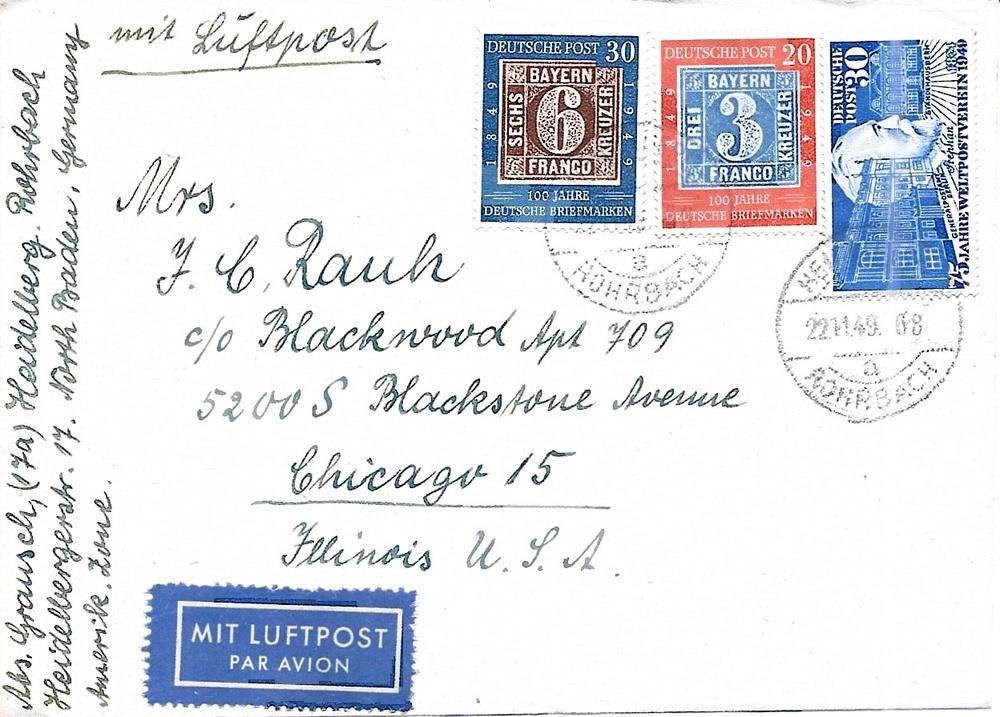 mit Luftpost
Mrs.
J. C. Rauh
c/o Blackwood Apt 709
5200 S Blackstone Avenue
Chicago 15
Illinois U. S. A.
Abs. Grausch, (17a) Heidelberg. Rohrbach
Heidelbergerstr. 17. North Baden, Germany
Amerik. Zone.
MIT LUFTPOST
PAR AVION
DEUTSCHE POST 30
BAYERN
SECHS 6 KREUZER
FRANCO
1849 1949
100 JAHRE
DEUTSCHE BRIEFMARKEN
DEUTSCHE POST 20
BAYERN
DREI 3 KREUZER
FRANCO
1849 1949
100 JAHRE
DEUTSCHE BRIEFMARKEN
DEUTSCHE
POST 30
STANDHAUS BERN
GENERALPOSTAMT BERLIN
Stephan
75 JAHRE WELTPOSTVEREIN 1949
a
ROHRBACH
22.11.49. 6-8
a
ROHRBACH